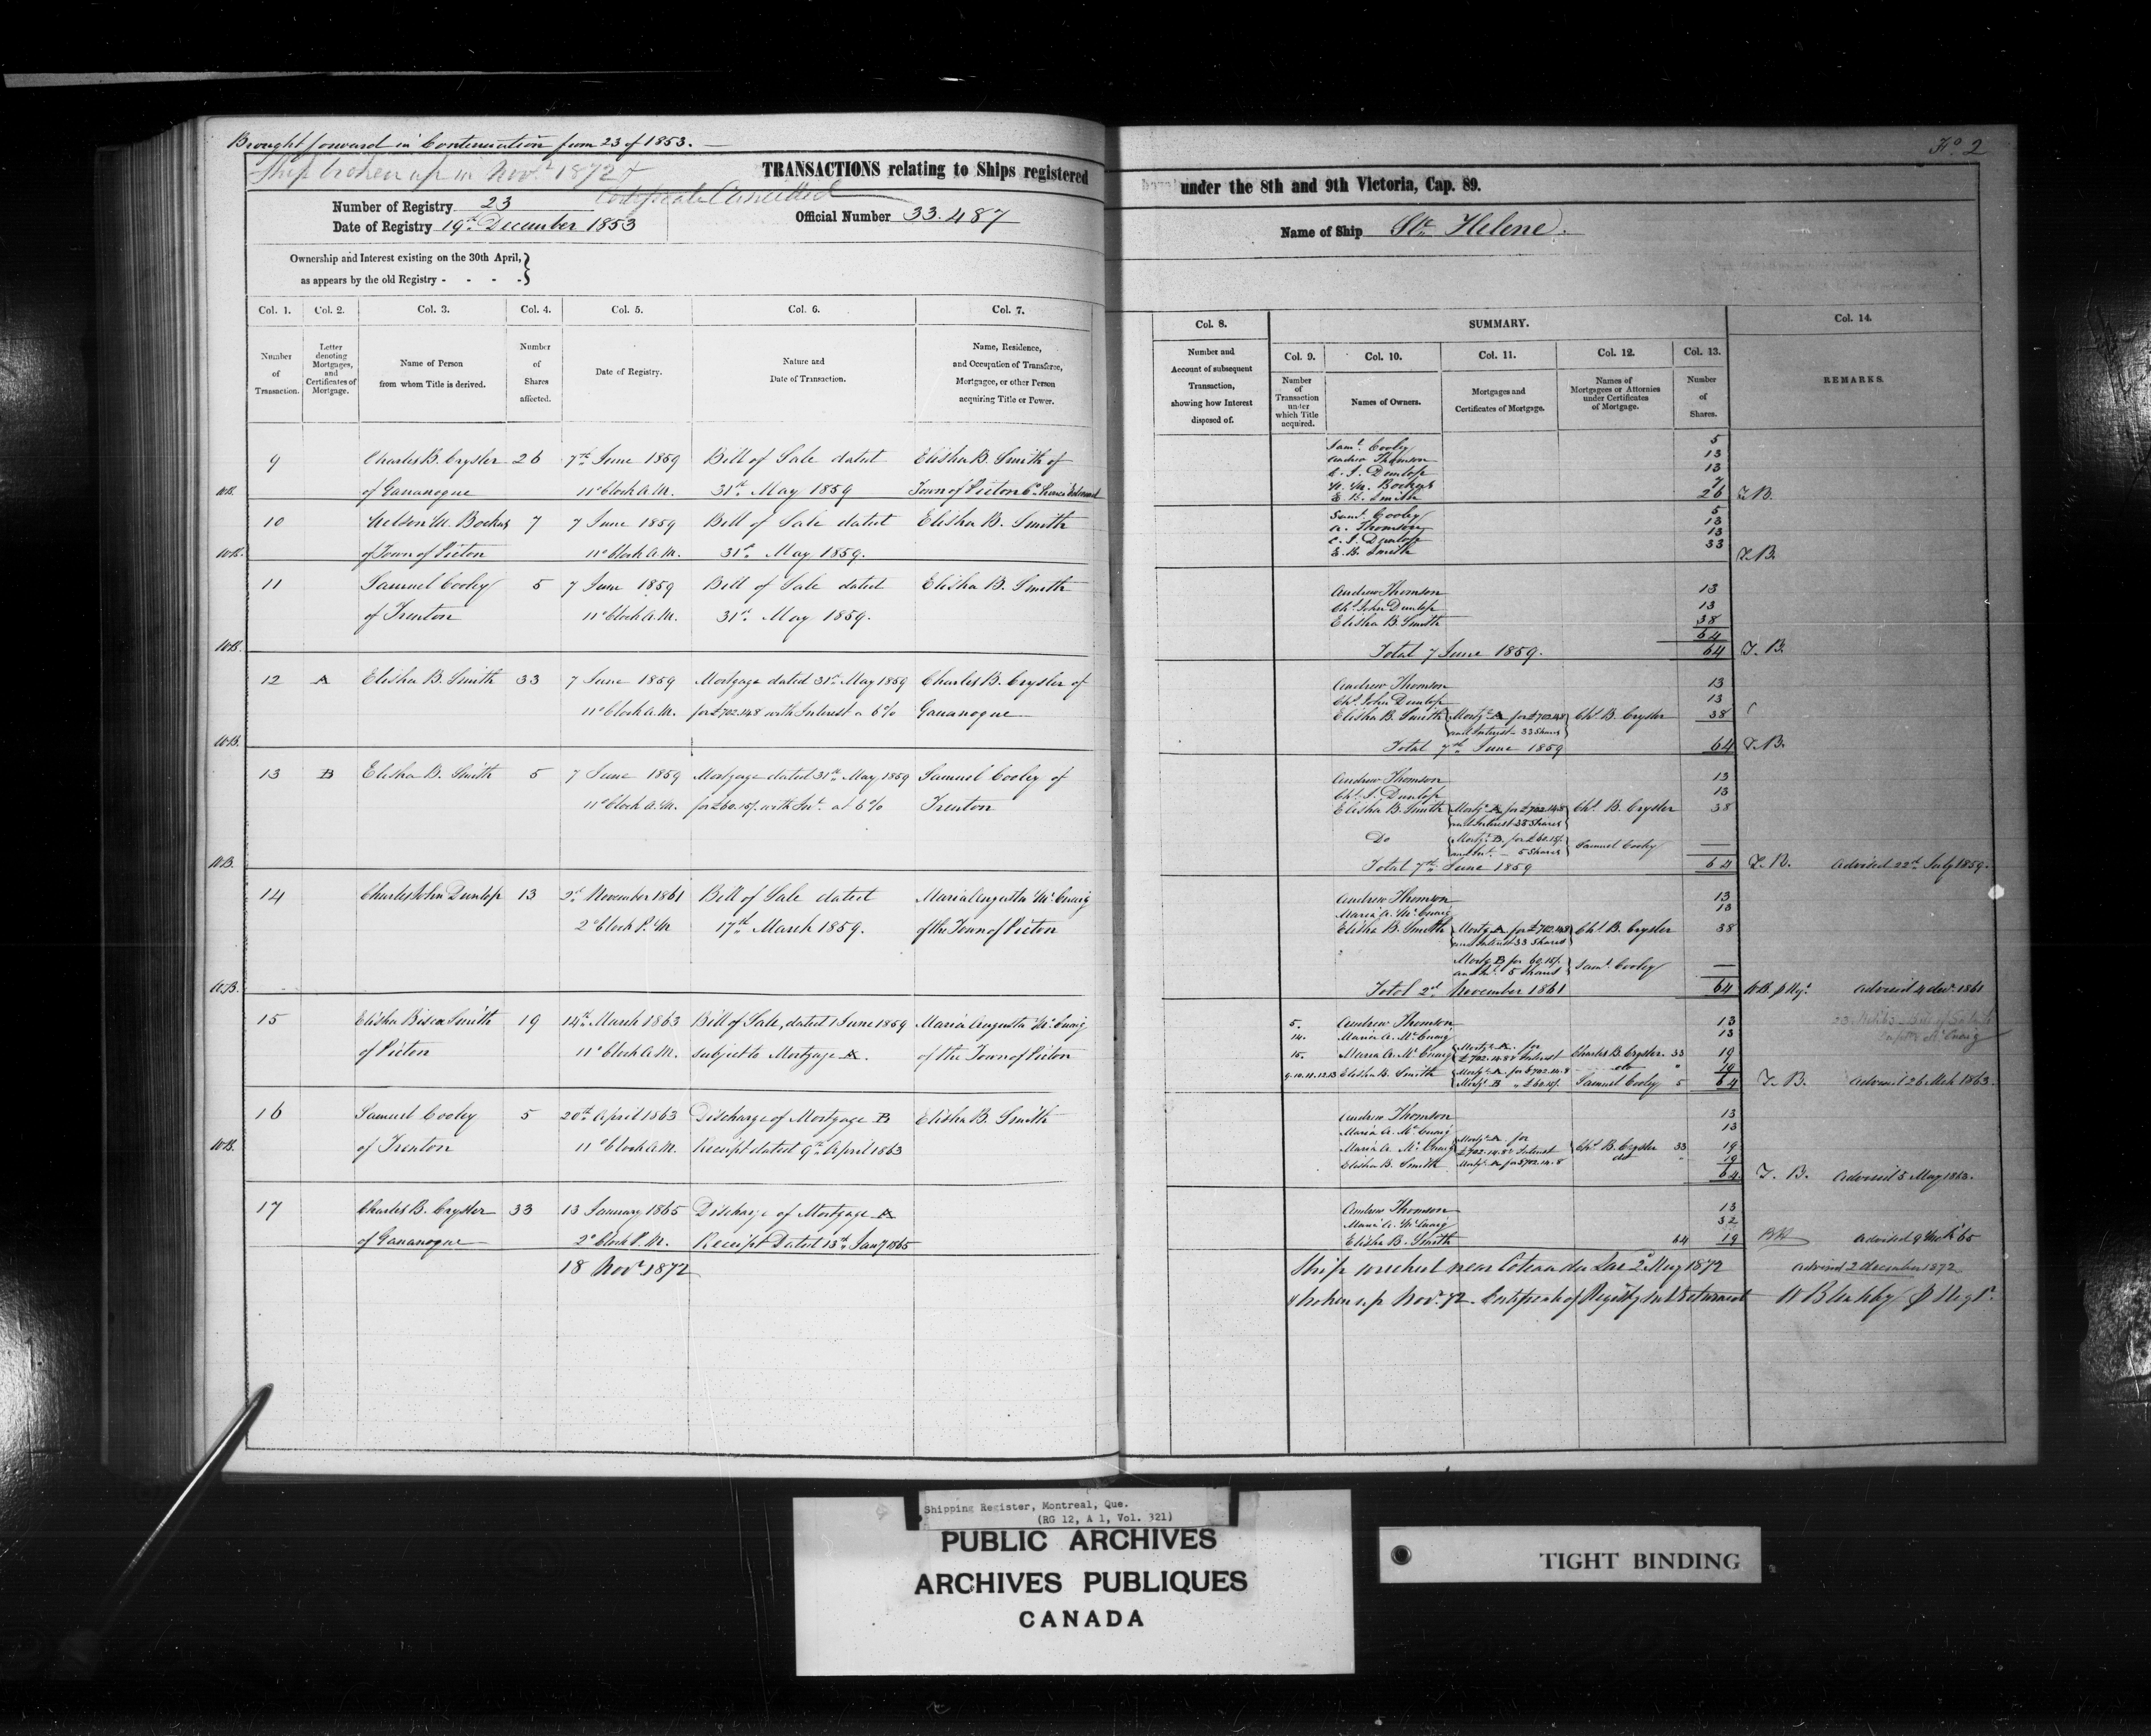 Brought forward in Continuation from 23 of 1853.
Ship broken up in Nov.r 1872 &
Certificate Cancelled
TRANSACTIONS relating to Ships registered
Number of Registry 23
Date of Registry 19th December 1853
Official Number 33.487
Ownership and Interest existing on the 30th April,
as appears by the old Registry - - - -
Col. 1. Col. 2. Col. 3. Col. 4. Col. 5. Col. 6. Col. 7.
Number of Transaction.
Letter denoting Mortgages, and Certificates of Mortgage.
Name of Person from whom Title is derived.
Number of Shares affected.
Date of Registry.
Nature and Date of Transaction.
Name, Residence, and Occupation of Transferee, Mortgagee, or other Person acquiring Title or Power.
9 Charles B. Crysler 26 7th June 1859 Bill of Sale dated Elisha B. Smith of
WB. of Gananoque 11 o'Clock A.M. 31st May 1859 Town of Picton Co. Prince Edward
10 Nelson M. Bockus 7 7 June 1859 Bill of Sale dated Elisha B. Smith
WB. of Town of Picton 11 o'Clock A.M. 31st May 1859.
11 Samuel Cooley 5 7 June 1859 Bill of Sale dated Elisha B. Smith
of Trenton 11 o'Clock A.M. 31st May 1859.
WB.
12 A Elisha B. Smith 33 7 June 1859 Mortgage dated 31st May 1859 Charles B. Crysler of
11 o'Clock A.M. for £702.14.8 with Interest a 6% Gananoque
WB.
13 B Elisha B. Smith 5 7 June 1859 Mortgage dated 31st May 1859 Samuel Cooley of
11 o'Clock A.M. for £60.15/. with Int. at 6% Trenton
WB.
14 Charles John Dunlop 13 2d November 1861 Bill of Sale dated Maria Augusta McCuaig
2 o'Clock P.M 17th March 1859. of the Town of Picton
WB.
15 Elisha Smith 19 14th March 1863 Bill of Sale, dated 1 June 1859 Maria Augusta McCuaig
of Picton 11 o'Clock A.M. subject to Mortgage A. of the Town of Picton
16 Samuel Cooley 5 20th April 1863 Discharge of Mortgage B Elisha B. Smith
WB. of Trenton 11 o'Clock A.M. Receipt dated 9th April 1863
17 Charles B. Crysler 33 13 January 1865 Discharge of Mortgage A
of Gananoque 2 o'Clock P.M. Receipt Dated 13th Jany 1865
18 Novr 1872
No 2
under the 8th and 9th Victoria, Cap. 89.
Name of Ship Ste Helene.
Col. 8. SUMMARY. Col. 14.
Col. 9. Col. 10. Col. 11. Col. 12. Col. 13.
Number and Account of subsequent Transaction, showing how Interest disposed of.
Number of Transaction under which Title acquired.
Names of Owners.
Mortgages and Certificates of Mortgage.
Names of Mortgagees or Attornies under Certificates of Mortgage.
Number of Shares.
REMARKS.
Saml Cooley 5
Andrew Thomson 13
C. J. Dunlop 13
N. M. Bockus 7
E. B. Smith 26 T.B.
Saml Cooley 5
A. Thomson 13
C. J. Dunlop 13
E. B. Smith 33
T.B.
Andrew Thomson 13
Chs John Dunlop 13
Elisha B. Smith 38
64
Total 7 June 1859. 64 T.B.
Andrew Thomson 13
Chs John Dunlop 13
Elisha B. Smith Mortge A for £702.14.8 Chs B. Crysler 38
and Interest - 33 Shares
Total 7th June 1859 64 T.B.
Andrew Thomson 13
Chs J. Dunlop 13
Elisha B. Smith Mortge A for £702.14.8 Chs B. Crysler 38
and Interest 33 Shares
Do Mortge B. for £60.15/.
and Int. - 5 Shares Samuel Cooley
Total 7th June 1859 64 T.B. Advised 22d July 1859.
Andrew Thomson 13
Maria A. McCuaig 13
Elisha B. Smith Mortge A for £702.14.8 Chs B. Crysler 38
and Interest 33 Shares
Mortge B for 60.15/.
and Int. 5 Shares Saml Cooley
Total 2d November 1861 64 WB. Advised 4 Decr 1861
5. Andrew Thomson 13
14. Maria A. McCuaig 13
15. Maria A. McCuaig Mortge A. for £702.14.8 & Interest Charles B. Crysler 33 19
9.10.11.12.13 Elisha B. Smith Mortge A. for £702.14.8 do 19
Mortge B " £60.15/. Samuel Cooley 5 64 T.B. Advised 26 Mch 1863.
Andrew Thomson 13
Maria A. McCuaig 13
Maria A. McCuaig Mortge A for £702.14.8 & Interest Chs B. Crysler 33 19
Elisha B. Smith Mortge A for £702.14.8 do 19
64 T.B. Advised 5 May 1863.
Andrew Thomson 13
Maria A. McCuaig 32
Elisha B. Smith 64 19 Advised 9 Mch 65
Ship wrecked near Coteau du Lac 2 May 1872 Advised 2 December 1872
& broken up Novr 72. Certificate of Registry not returned
Shipping Register, Montreal, Que.
(RG 12, A 1, Vol. 321)
PUBLIC ARCHIVES
ARCHIVES PUBLIQUES
CANADA
TIGHT BINDING